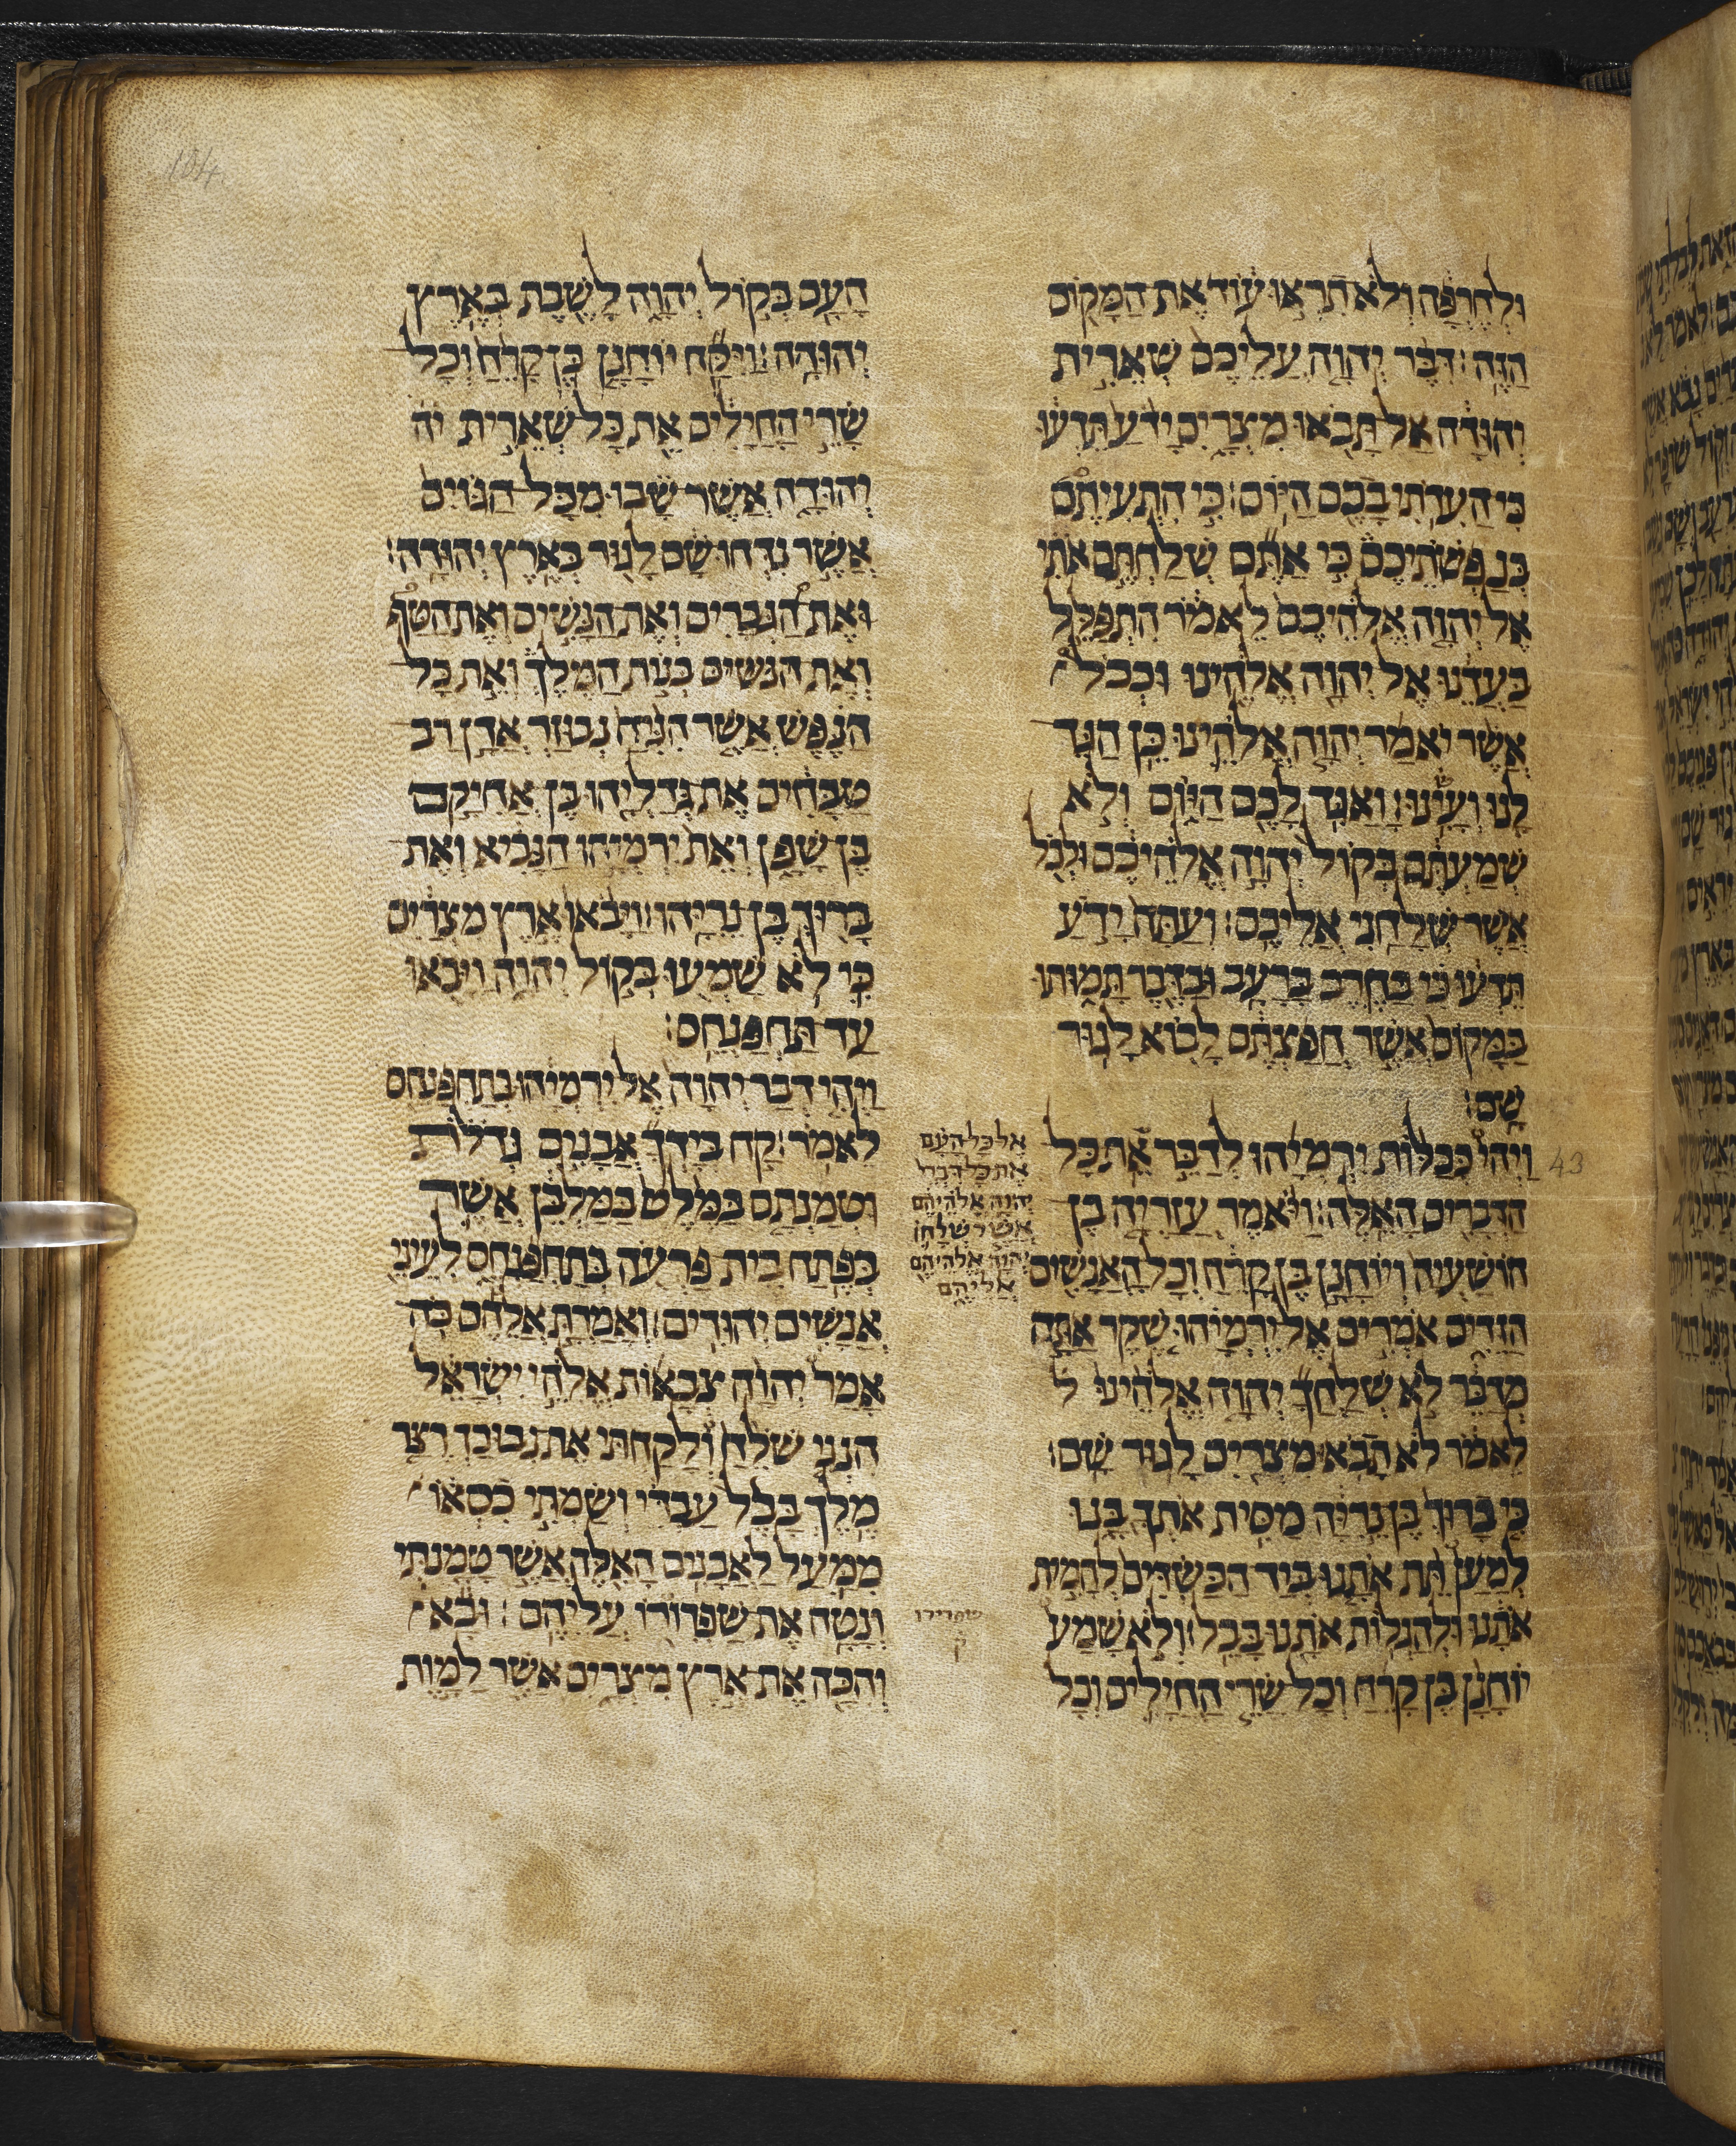 ולחרפה ולא תראו עוד את המקום
הזה: דבר יהוה עליכם שארית
יהודה אל תבאו מצרים ידע תדעו
כי העדתי בכם היום: כי התעיתם
בנפשתיכם כי אתם שלחתם אתי
אל יהוה אלהיכם לאמר התפלל
בעדנו אל יהוה אלהינו וככל
אשר יאמר יהוה אלהינו כן הגד
לנו ועשינו: ואגד לכם היום ולא
שמעתם בקול יהוה אלהיכם ולכל
אשר שלחני אליכם: ועתה ידע
תדעו כי בחרב ברעב ובדבר תמותו
במקום אשר חפצתם לבוא לגור
שם:
43
ויהי ככלות ירמיהו לדבר את כל
הדברים האלה: ויאמר עזריה בן
הושעיה ויוחנן בן קרח וכל האנשים
הזדים אמרים אל ירמיהו שקר אתה
מדבר לא שלחך יהוה אלהינו ל
לאמר לא תבא מצרים לגור שם:
כי ברוך בן נריה מסית אתך בנו
למען תת אתנו ביד הכשדים להמית
אתנו ולהגלות אתנו בבל: ולא שמע
יוחנן בן קרח וכל שרי החילים וכל
אל כל העם
את כל דברי
יהוה אלהיהם
אשר שלחו
יהוה אלהיהם
אליהם
שפרירו
ק
104
העם בקול יהוה לשבת בארץ
יהודה: ויקח יוחנן בן קרח וכל
שרי החילים את כל שארית יה
יהודה אשר שבו מכל הגוים
אשר נדחו שם לגור בארץ יהודה:
ואת הגברים ואת הנשים ואת הטף
ואת הנשים בנות המלך ואת כל
הנפש אשר הניח נבוזר אדן רב
טבחים את גדליהו בן אחיקם
בן שפן ואת ירמיהו הנביא ואת
ברוך בן נריהו: ויבאו ארץ מצרים
כי לא שמעו בקול יהוה ויבאו
עד תחפנחס:
ויהי דבר יהוה אל ירמיהו בתחפנחס
לאמר: קח בידך אבנים גדלות
וטמנתם במלט במלבן אשר
בפתח בית פרעה בתחפנחס לעיני
אנשים יהודים: ואמרת אלהם כה
אמר יהוה צבאות אלהי ישראל
הנני שלח ולקחתי את נבוכדרצר
מלך בבל עבדי ושמתי כסאו
ממעל לאבנים האלה אשר טמנתי
ונטה את שפרורו עליהם: ובא
והכה את ארץ מצרים אשר למות